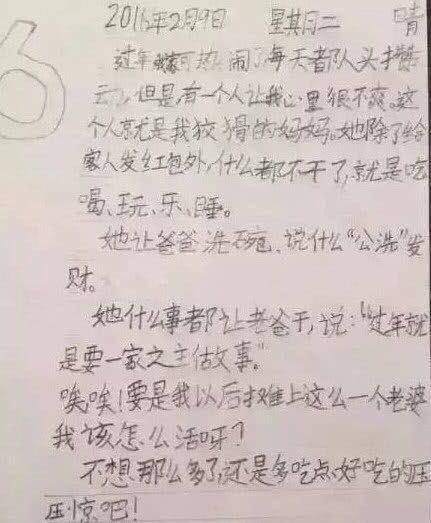 6
2016年2月9日 星期二 晴
过年我家可热闹了每天都人头攒
云了,但是有一个人让我心里很不爽。这
个人就是我狡猾的妈妈。她除了给
客人发红包外,什么都不干了,就是吃
喝、玩、乐、睡。
她让爸爸洗碗、说什么“公洗”发
财。
她什么事都让老爸干,说:“过年就
是要一家之主做故事。”
唉唉!要是我以后摊上这么一个老婆
我该怎么活呀?
不想那么多了,还是多吃点好吃的压
压惊吧!